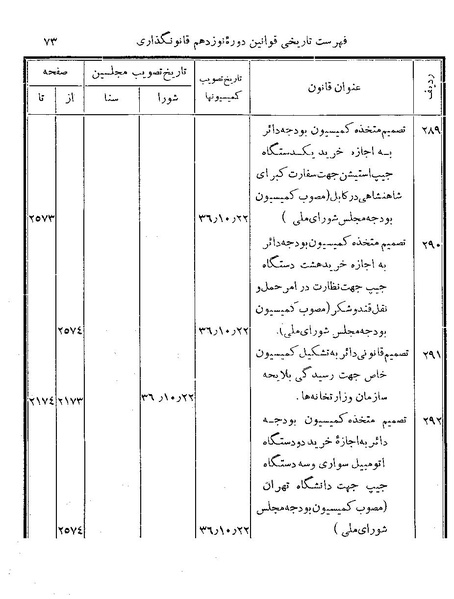 فهرست تاریخی قوانین دورهٔ نوزدهم قانونگذاری
۷۳
ردیف
عنوان قانون
تاریخ تصویب کمیسیونها
تاریخ تصویب مجلسین
شورا
سنا
صفحه
از
تا
۲۸۹
تصمیم متخذه کمیسیون بودجه دائر
به اجازه خرید یکدستگاه
جیپ استیشن جهت سفارت کبرای
شاهنشاهی در کابل (مصوب کمیسیون
بودجه مجلس شورای ملی )
۳۶٫۱۰٫۲۲
۲۵۷۳
۲۹۰
تصمیم متخذه کمیسیون بودجه دائر
به اجازه خرید هشت دستگاه
جیپ جهت نظارت در امر حمل و
نقل قند و شکر (مصوب کمیسیون
بودجه مجلس شورای ملی).
۳۶٫۱۰٫۲۲
۲۵۷۴
۲۹۱
تصمیم قانونی دائر به تشکیل کمیسیون
خاص جهت رسیدگی بلایحه
سازمان وزارتخانه‌ها.
۳۶٫۱۰٫۲۲
۲۱۷۳
۲۱۷۴
۲۹۲
تصمیم متخذه کمیسیون بودجه
دائر به اجازهٔ خرید دو دستگاه
اتومبیل سواری و سه دستگاه
جیپ جهت دانشگاه تهران
(مصوب کمیسیون بودجه مجلس
شورای ملی )
۳۶٫۱۰٫۲۲
۲۵۷۴